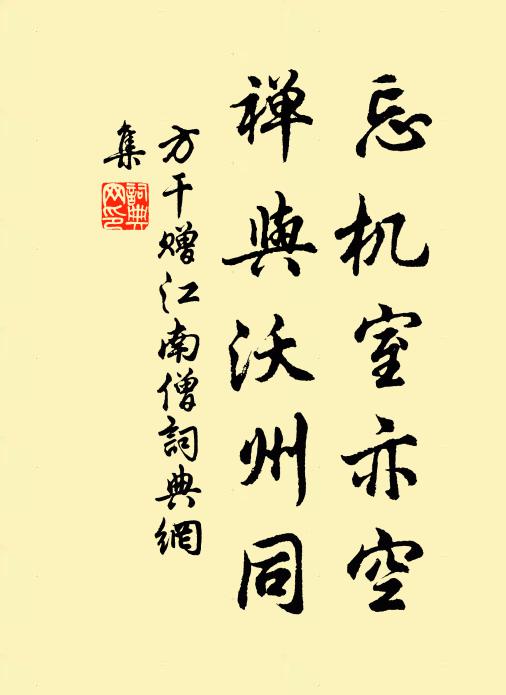 忘机室亦空
禅與沃州同
方干赠江南僧詞典網
集
詞典
网印